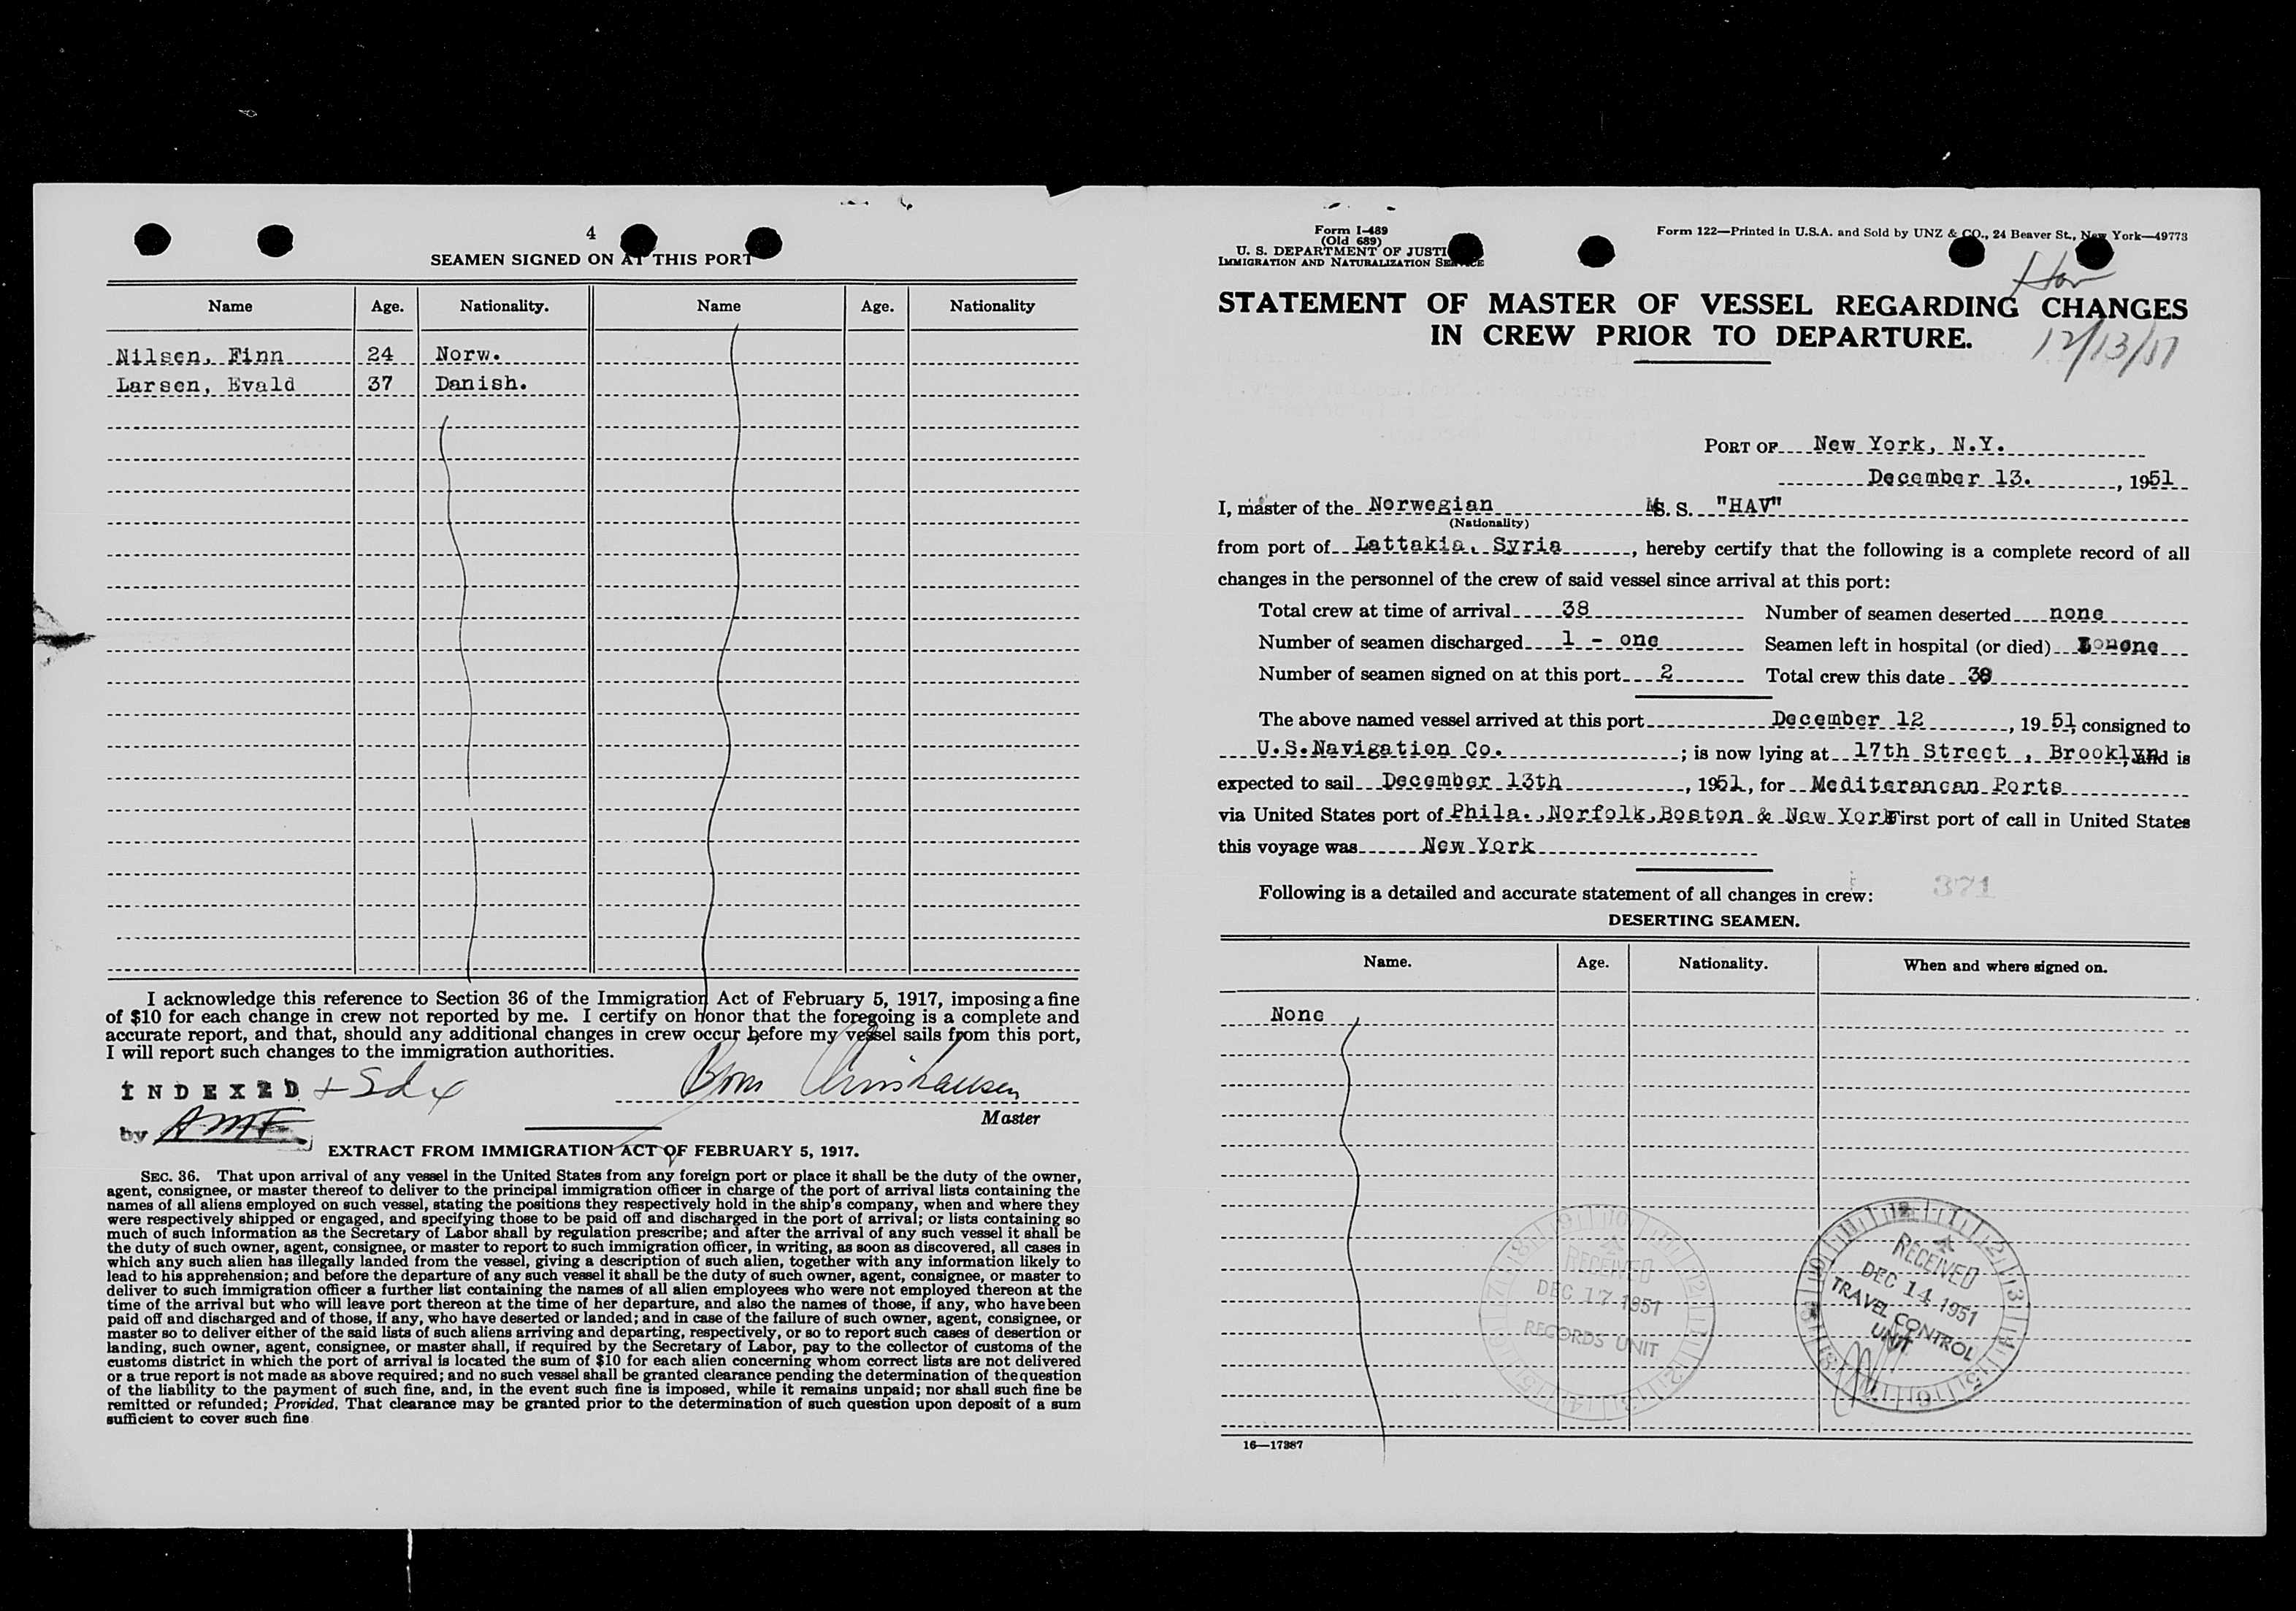 4
SEAMEN SIGNED ON AT THIS PORT
Name Age. Nationality. Name Age. Nationality
Nilsen, Finn 24 Norw.
Larsen, Evald 37 Danish.
I acknowledge this reference to Section 36 of the Immigration Act of February 5, 1917, imposing a fine
of $10 for each change in crew not reported by me. I certify on honor that the foregoing is a complete and
accurate report, and that, should any additional changes in crew occur before my vessel sails from this port,
I will report such changes to the immigration authorities.
INDEXED
Master
by AMF
EXTRACT FROM IMMIGRATION ACT OF FEBRUARY 5, 1917.
SEC. 36. That upon arrival of any vessel in the United States from any foreign port or place it shall be the duty of the owner,
agent, consignee, or master thereof to deliver to the principal immigration officer in charge of the port of arrival lists containing the
names of all aliens employed on such vessel, stating the positions they respectively hold in the ship's company, when and where they
were respectively shipped or engaged, and specifying those to be paid off and discharged in the port of arrival; or lists containing so
much of such information as the Secretary of Labor shall by regulation prescribe; and after the arrival of any such vessel it shall be
the duty of such owner, agent, consignee, or master to report to such immigration officer, in writing, as soon as discovered, all cases in
which any such alien has illegally landed from the vessel, giving a description of such alien, together with any information likely to
lead to his apprehension; and before the departure of any such vessel it shall be the duty of such owner, agent, consignee, or master to
deliver to such immigration officer a further list containing the names of all alien employees who were not employed thereon at the
time of the arrival but who will leave port thereon at the time of her departure, and also the names of those, if any, who have been
paid off and discharged and of those, if any, who have deserted or landed; and in case of the failure of such owner, agent, consignee, or
master so to deliver either of the said lists of such aliens arriving and departing, respectively, or so to report such cases of desertion or
landing, such owner, agent, consignee, or master shall, if required by the Secretary of Labor, pay to the collector of customs of the
customs district in which the port of arrival is located the sum of $10 for each alien concerning whom correct lists are not delivered
or a true report is not made as above required; and no such vessel shall be granted clearance pending the determination of the question
of the liability to the payment of such fine, and, in the event such fine is imposed, while it remains unpaid; nor shall such fine be
remitted or refunded; Provided, That clearance may be granted prior to the determination of such question upon deposit of a sum
sufficient to cover such fine
Form I-489
(Old 689)
U. S. DEPARTMENT OF JUSTI
IMMIGRATION AND NATURALIZATION SERVICE
Form 122—Printed in U.S.A. and Sold by UNZ & CO., 24 Beaver St., New York—49773
Hav
STATEMENT OF MASTER OF VESSEL REGARDING CHANGES
IN CREW PRIOR TO DEPARTURE.
12/13/51
PORT OF New York, N.Y.
December 13. , 1951
I, master of the Norwegian M.S. "HAV"
(Nationality)
from port of Lattakia, Syria , hereby certify that the following is a complete record of all
changes in the personnel of the crew of said vessel since arrival at this port:
Total crew at time of arrival 38 Number of seamen deserted none
Number of seamen discharged 1 - one Seamen left in hospital (or died) none
Number of seamen signed on at this port 2 Total crew this date 39
The above named vessel arrived at this port December 12 , 1951, consigned to
U.S.Navigation Co. ; is now lying at 17th Street , Brooklyn, and is
expected to sail December 13th , 1951, for Mediterancan Ports
via United States port of Phila.,Norfolk,Boston & New York First port of call in United States
this voyage was New York
Following is a detailed and accurate statement of all changes in crew: 371
DESERTING SEAMEN.
Name. Age. Nationality. When and where signed on.
None
RECEIVED
DEC 17 1951
RECORDS UNIT
RECEIVED
DEC 14 1951
TRAVEL CONTROL
UNIT
16—17387